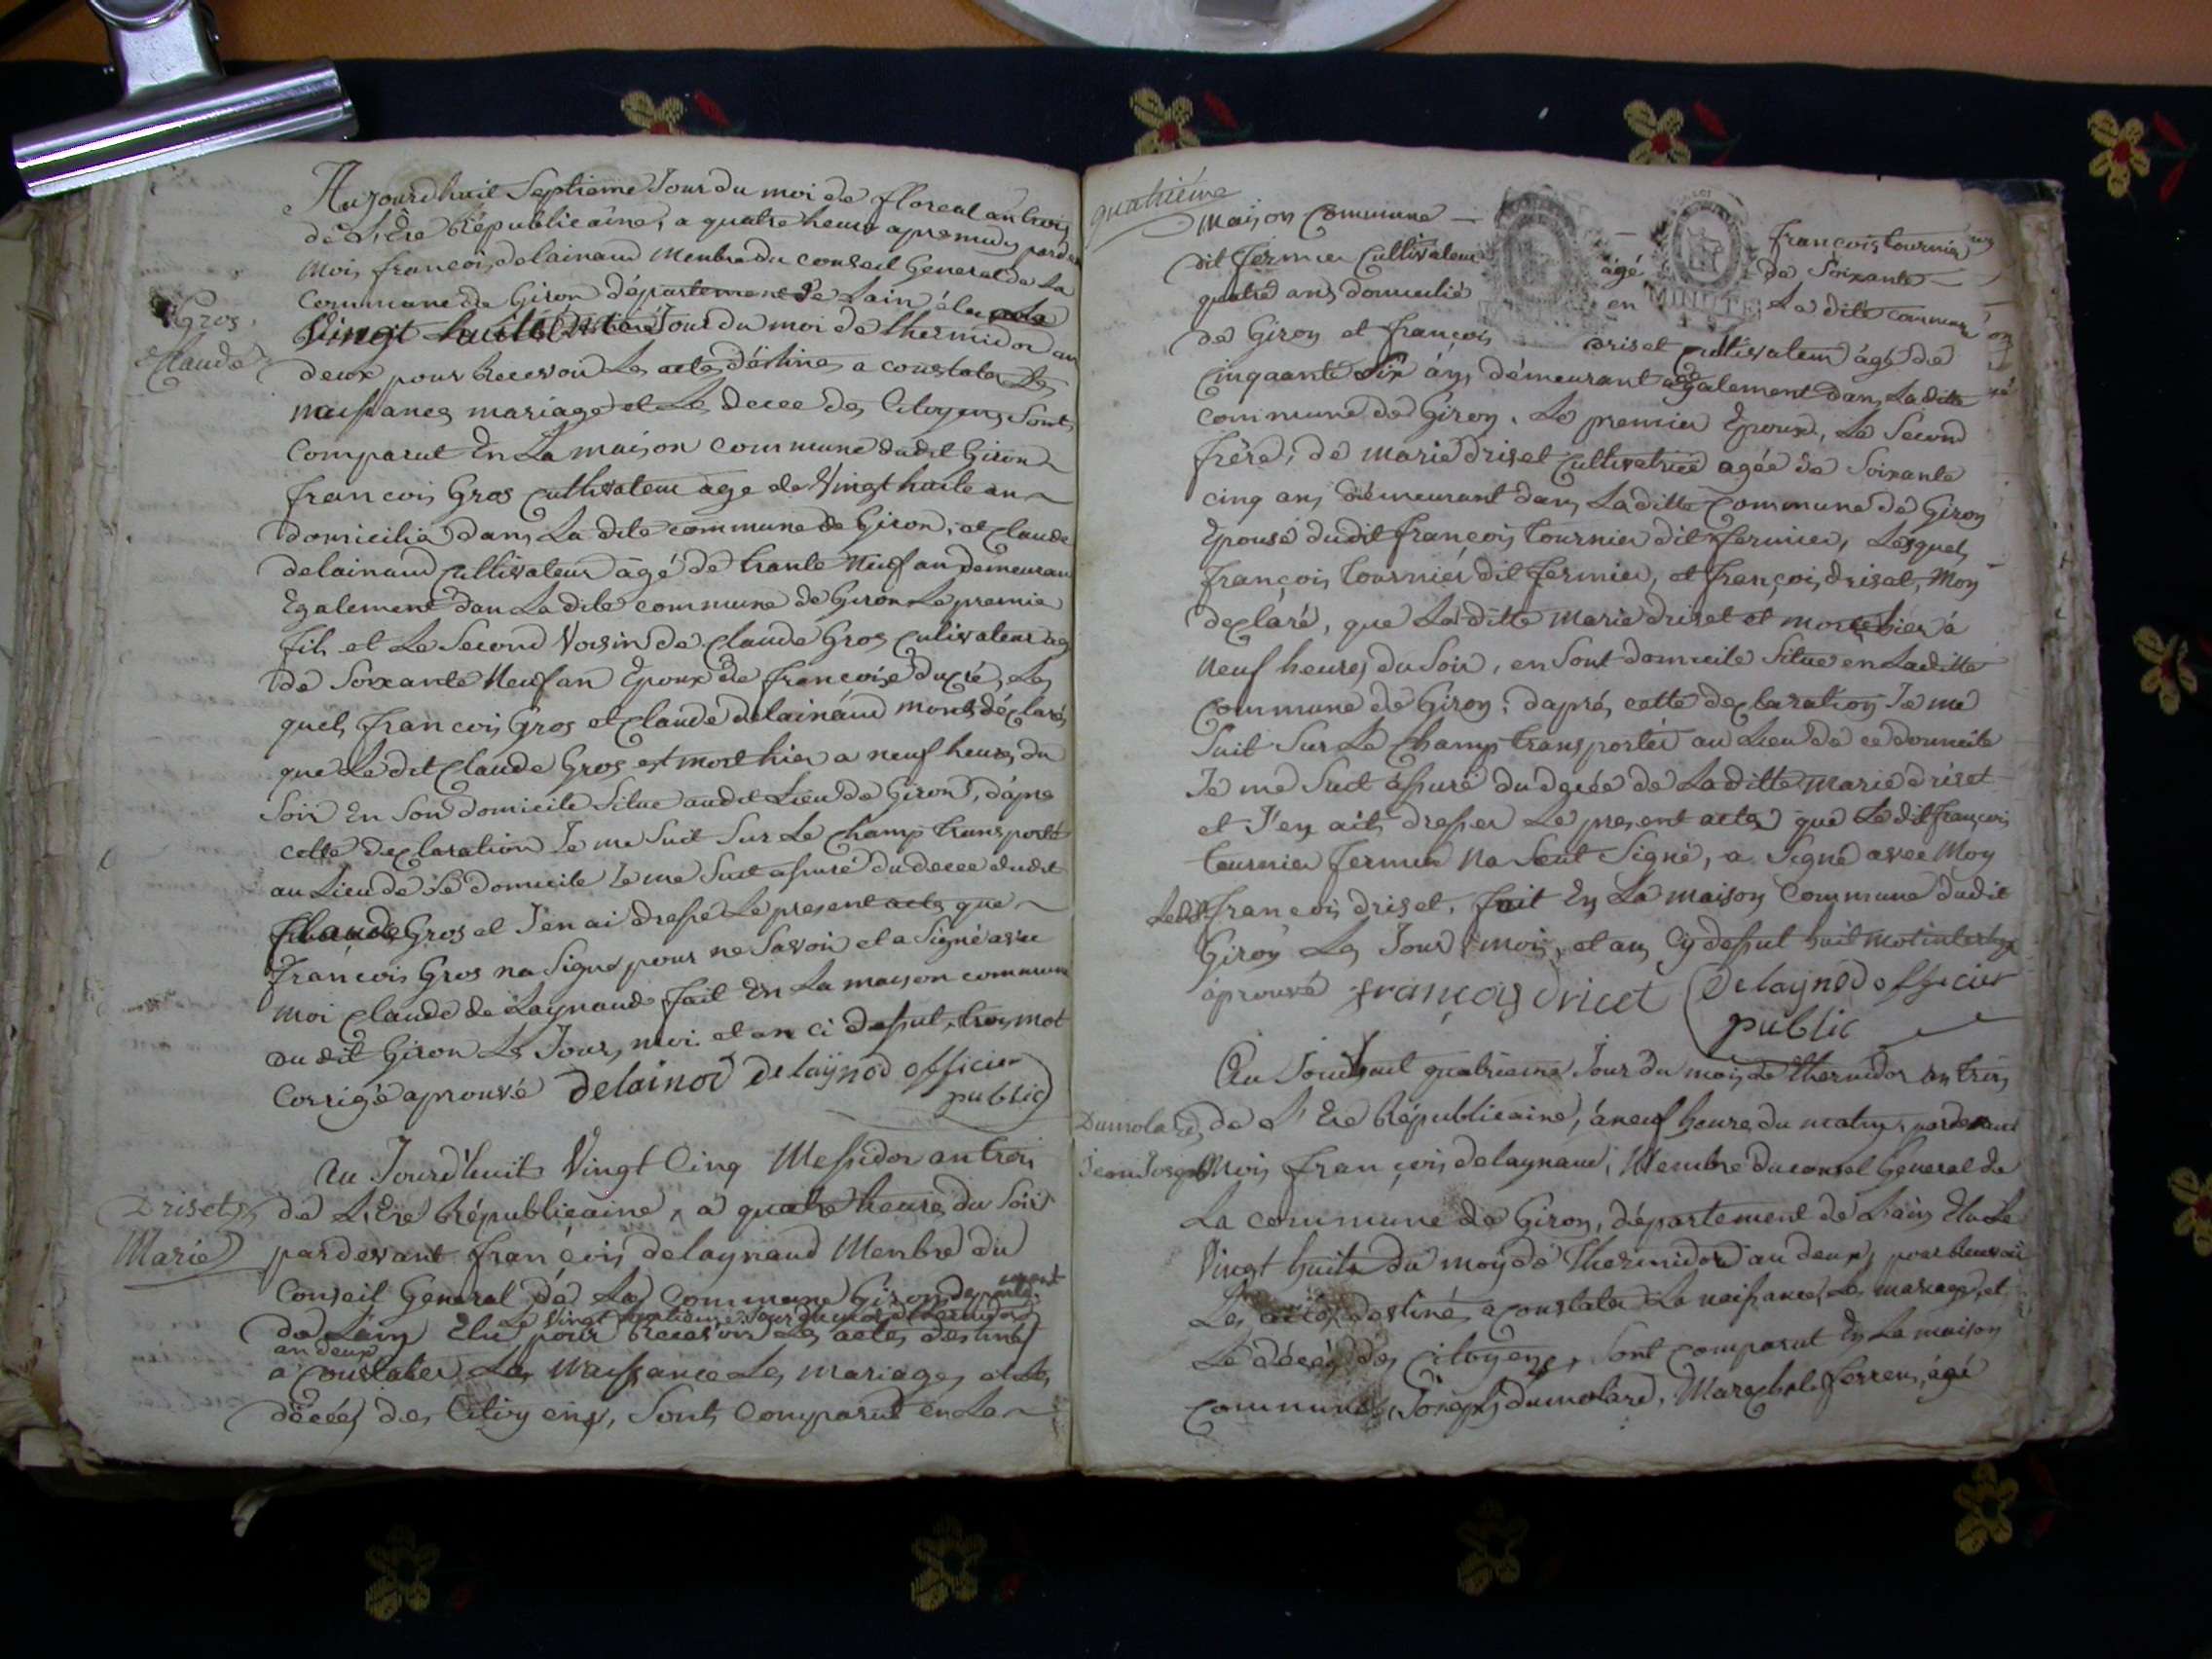 Aujourdhuit Septieme Jour du moi de floreal an trois
de L'Ere Républicaine, a quatre heure apremidy parde
Moi françois delainaud Membre du conseil General de La
Commune de Giron département de Lain élu
Gros
Claude
Vingt huit Jour du moi de thermidor an
deux pour Recevoir Les actes déstines a constater Les
naissances mariage et Les decee des Citoyens Sont
Comparut En La maison commune dudit Giron
francois Gros Cultivateur age de Vingt huite an
domicilia dans La dite commune de Giron, et Claude
delainaud Cultivateur àgé de trante Neuf an demeuran
Egalement dan La dite commune de Giron Le premie
fils et Le Second Voisin de Claude Gros Cultivateur ag
de Soixante Neuf an Epoux de françoise ducré, Les
quels francois Gros et Claude delainaud monts déclaré
que Le dit Claude Gros est mort hier a neuf heures du
Soir En Son domicile Situe audit Lieu de Giron, dapre
cette declaration Je me Suit Sur Le Champ transporté
au Lieu de se domicile Je me Suit assuré du decee dudit
Claude Gros et J'en ai dressé Le present acte que
françois Gros na Signé pour ne Savoir et a Signé avec
moi Claude de Laynaud fait En La maison commune
du dit Giron Les Jour, moi et an ci dessut, trois mot
Corrigé aprouvé delainod delaynod officier
public
Au Jourd'huit Vingt Cinq Messidor an trois
Driset
Marie
de L'Ere Républicaine, a quatre heure du Soir
pardevant françois delaynaud Membre du
Conseil General de La Commune Giron departement
Le Vingt Jour du mois de thermidor
de Lain Elu pour Recevoir Les actes destinés
an deux
a Constater Les Naissance Les mariages et Les
décées des Citoyens, Sont Comparut en La
quatriéme
Maison Commune françois tournier
dit fermier Cultivateur àgé de Soixante
quatre ans domicilié en La ditte commune
de Giron et françois driset Cultivateur àgé de
Cinquante Six áns démeurant également dans La ditte
commune de Giron. Le premier Epoux, Le Second
frére, de marie driset Cultivatrice agée de Soixante
cinq ans démeurant dans La ditte Commune de Giron
Epouse dudit françois tournier dit fermier, Lesquels
françois tournier dit fermier, et françois driset, Mon
declaré, que La ditte Marie driset et morte hier à
neuf heures du Soir, en Sont domicile Situe en La ditte
Commune de Giron; daprés cette declaration Je me
Suit Sur Le Champ transportér au Lieu de ce domicile
Je me Suit àssuré du déçée de La ditte Marie driset
et J'en ait dresser Le present acte que Le dit françois
tournier fermier Na Seut Signé, a Signé avec Moy
Ledit françois driset. fait En La maison Commune dudit
Giron Les Jour mois, et an Cÿ dessut huit mot interligne
áprouvé françois driset Delaynod officier
public
Au Jourdhuit quatrieme Jour du mois de thermidor an trois
Dumolard
Jean Joseph
de L'Ere Républicaine, à neuf heure du matin, pardevant
Mois françois delaynaud, Membre du consel General de
La commune de Giron, département de L'ain Elu Le
Vingt huite du moy de Thermidor an deux, pour Recevoir
Les actes destiné a Constater La naissance, Les mariage, et
Le décés des Citoyens, Sont Comparut En La maison
commune, Joseph dumolard, Marechal ferren, ágé